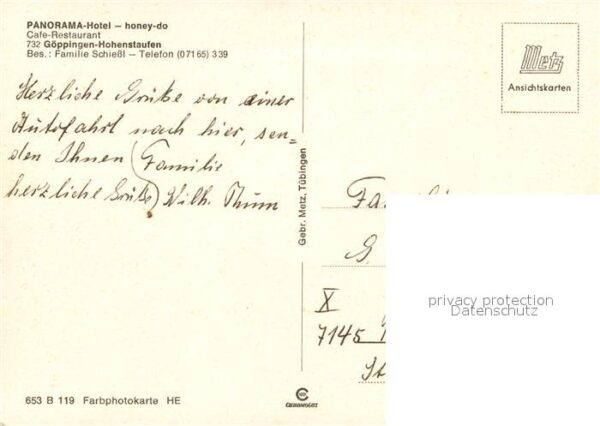 PANORAMA-Hotel – honey-do
Cafe-Restaurant
732 Göppingen-Hohenstaufen
Bes.: Familie Schießl – Telefon (07165) 339
Metz
Ansichtskarten
Herzliche Grüße von einer
Autofahrt nach hier, sen-
den Ihnen (Familie
herzliche Grüße) Wilh. Thum
Gebr. Metz, Tübingen
Fa
G.
X
7145
St
privacy protection
Datenschutz
653 B 119 Farbphotokarte HE